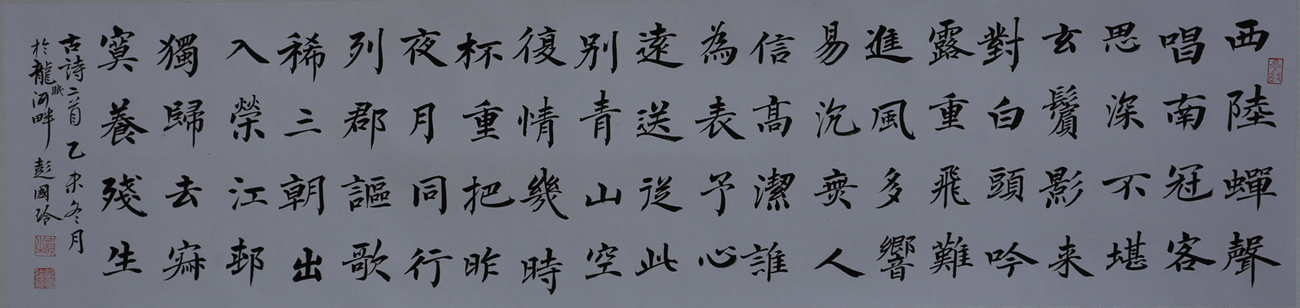 西陸蟬聲
唱南冠客
思深不堪
玄鬢影来
對白頭吟
露重飛難
進風多響
易沉無人
信高潔誰
為表予心
遠送從此
别青山空
復情幾時
杯重把昨
夜月同行
列郡謳歌
稀三朝出
入榮江邨
獨歸去寂
寞養殘生
古詩二首乙未冬月
於龍眠河畔彭國玲